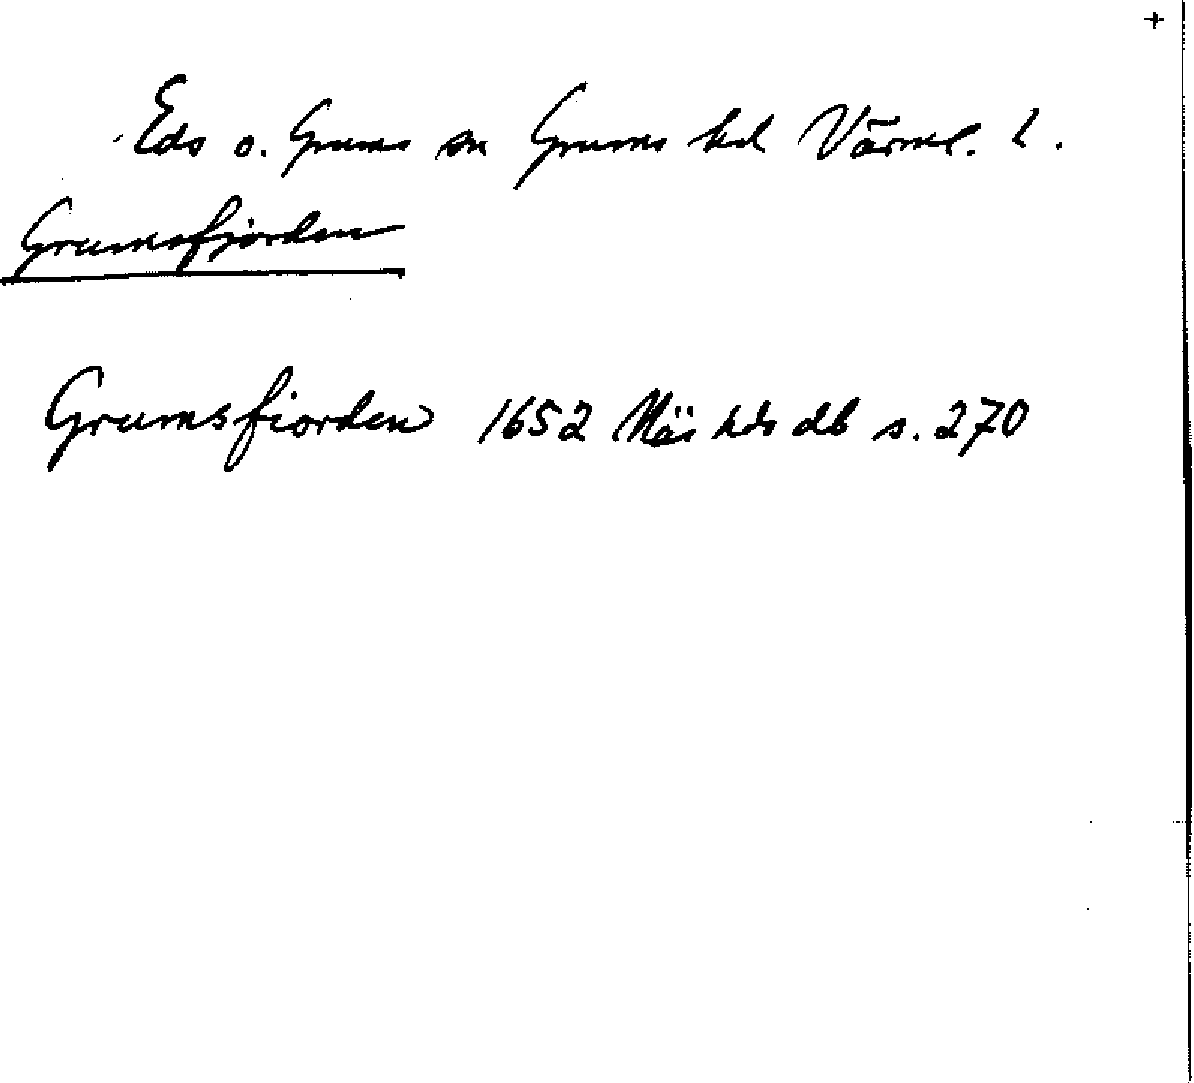 Eds o. Grums sn Grums hd Värml. l.
Grumsfjorden
Grumsfiorden 1652 Näs hds db s. 270